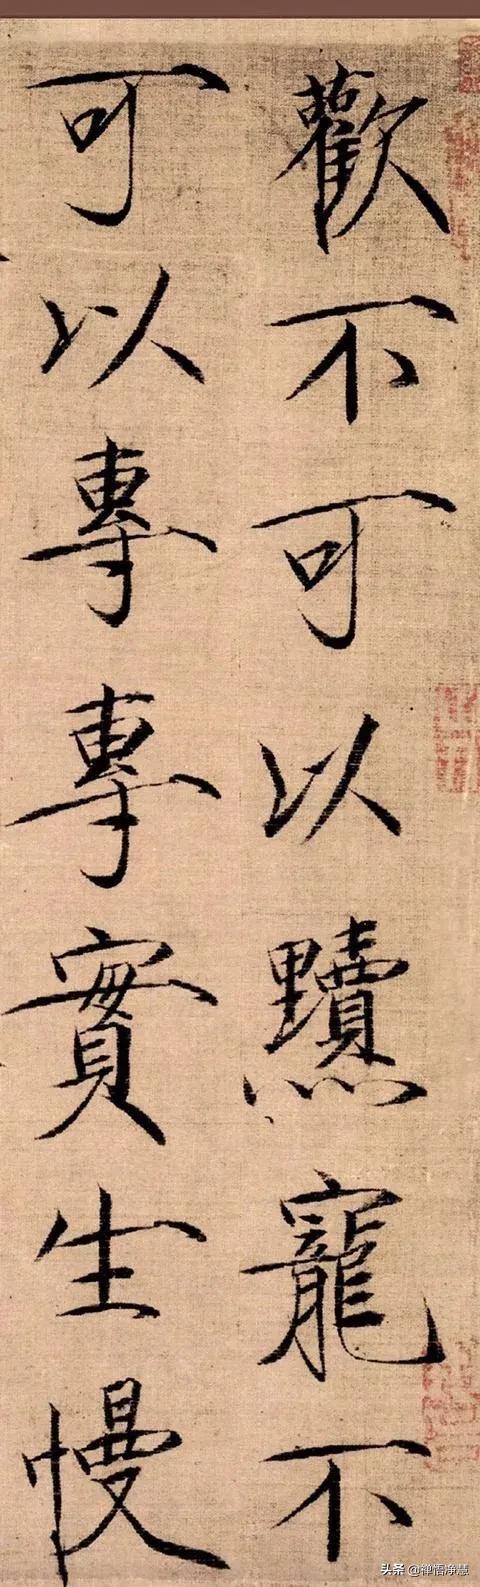 歡不可以黷寵不
可以專專實生慢
头条 @禅悟净慧